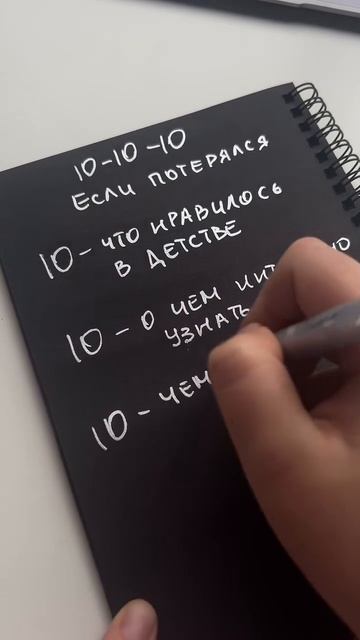 10-10-10
ЕСЛИ ПОТЕРЯЛСЯ
10 - ЧТО НРАВИЛОСЬ
В ДЕТСТВЕ
10 - О ЧЕМ
УЗНАТЬ
10 - ЧЕМ